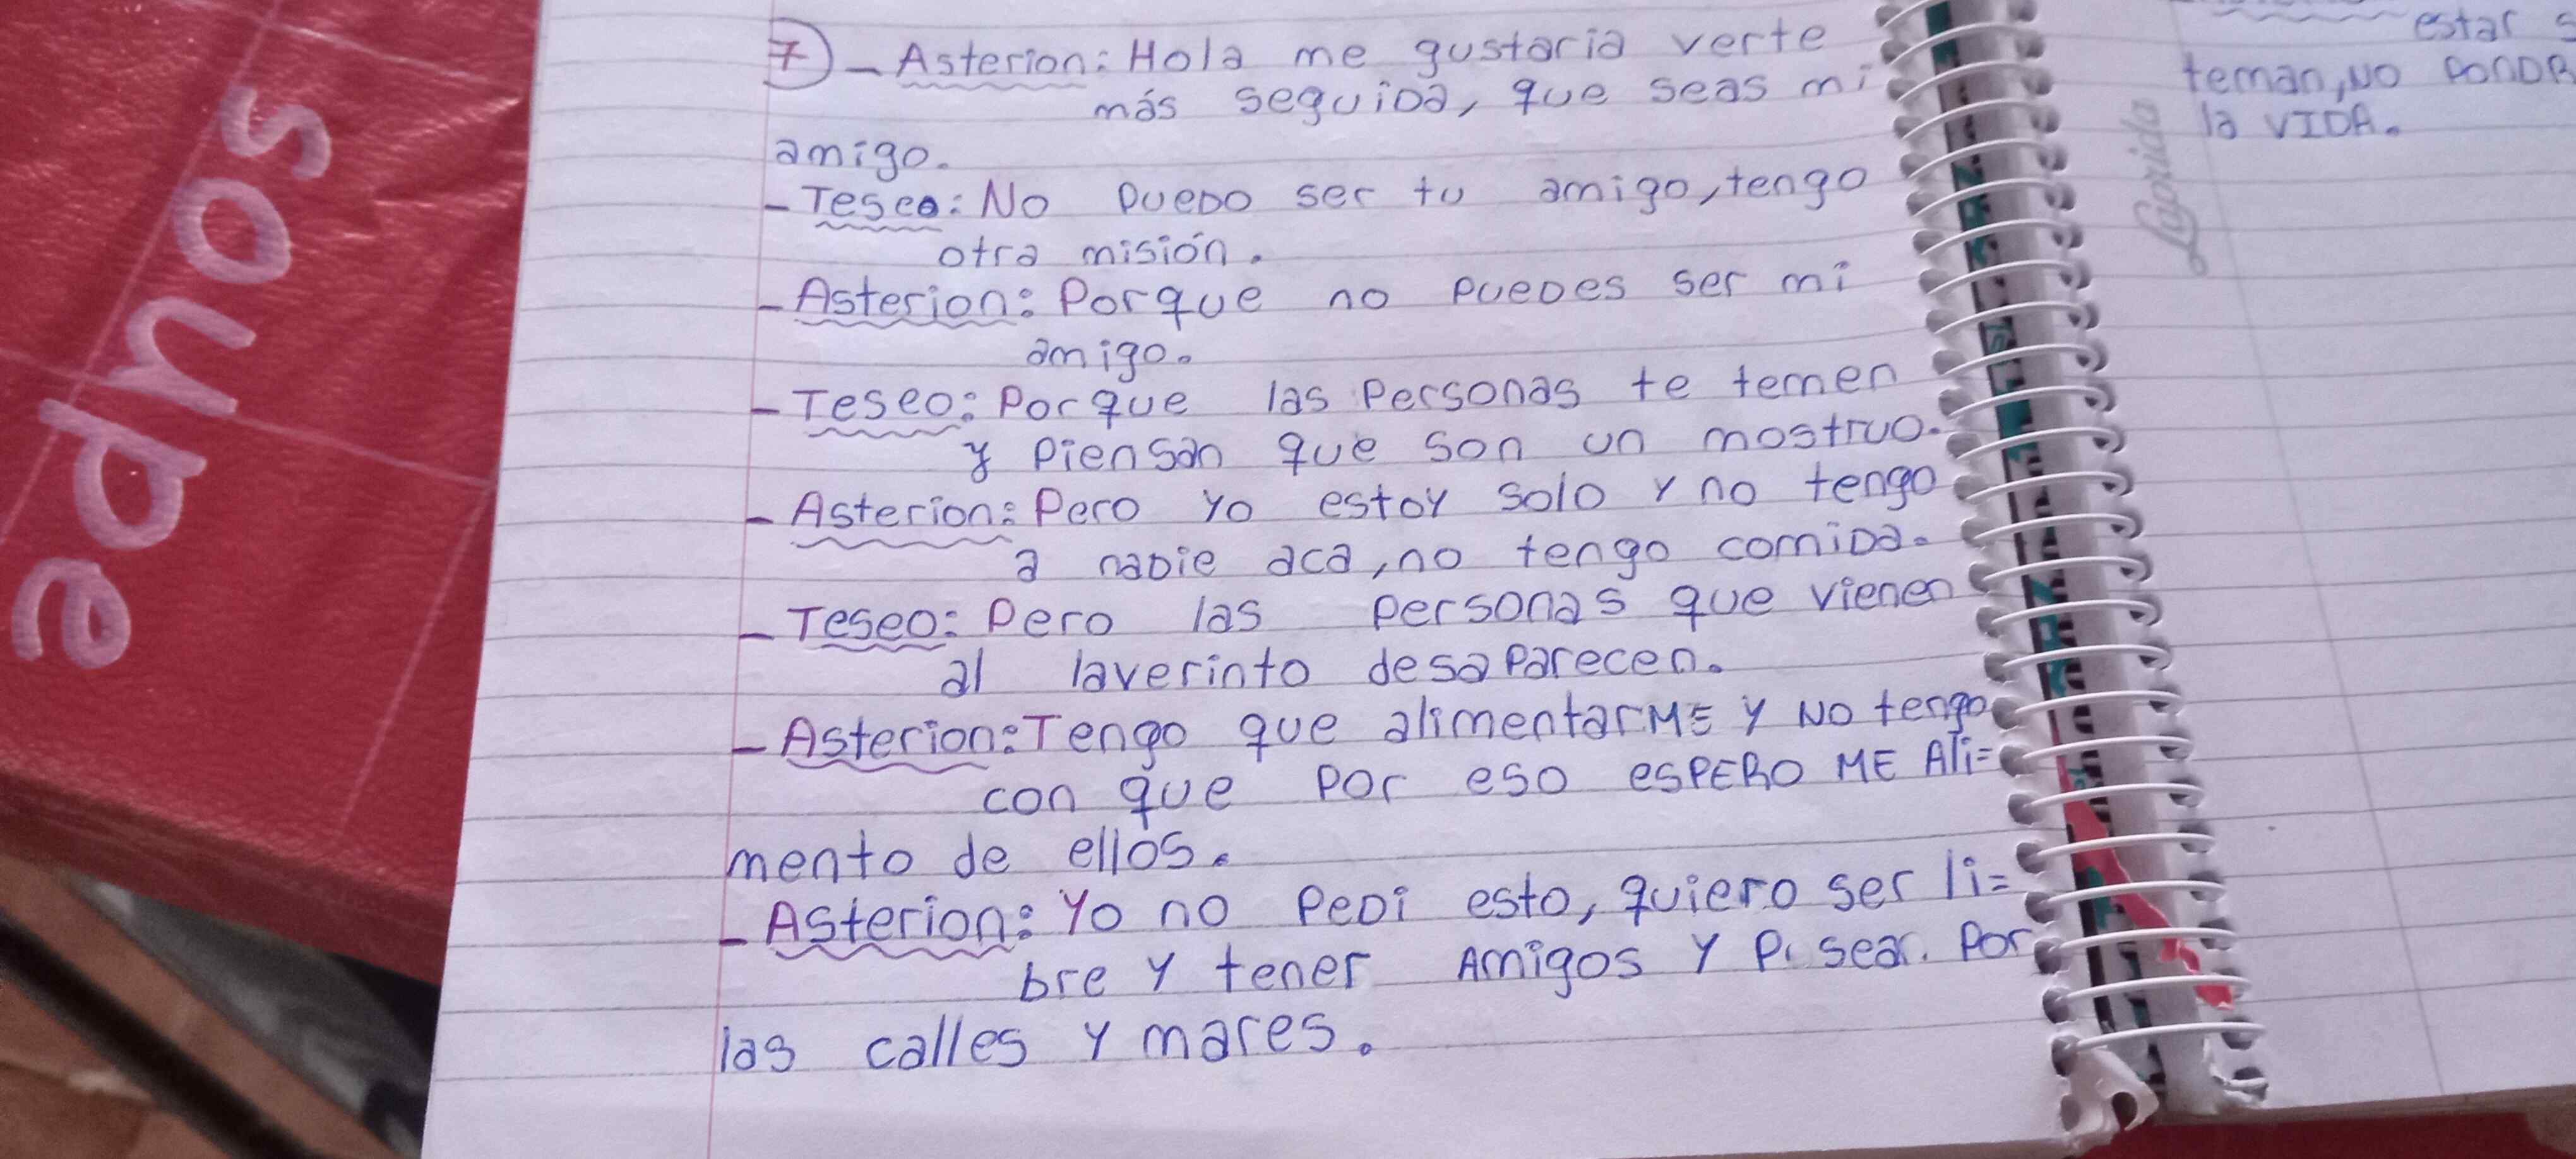 7 - Asterion: Hola me gustaria verte
más seguida, que seas mi
amigo.
- Teseo: No puedo ser tu amigo, tengo
otra misión.
- Asterion: Porque no puedes ser mi
amigo.
- Teseo: Porque las personas te temen
y piensan que son un mostruo.
- Asterion: Pero yo estoy solo y no tengo
a nadie aca, no tengo comida.
- Teseo: Pero las personas que vienen
al laverinto desaparecen.
- Asterion: Tengo que alimentarME y NO tengo
con que por eso esPERO ME Ali=
mento de ellos.
- Asterion: Yo no pedi esto, quiero ser li=
bre y tener Amigos y Por
las calles y mares.
estar
teman, NO
la VIDA.
Laprida
adnos